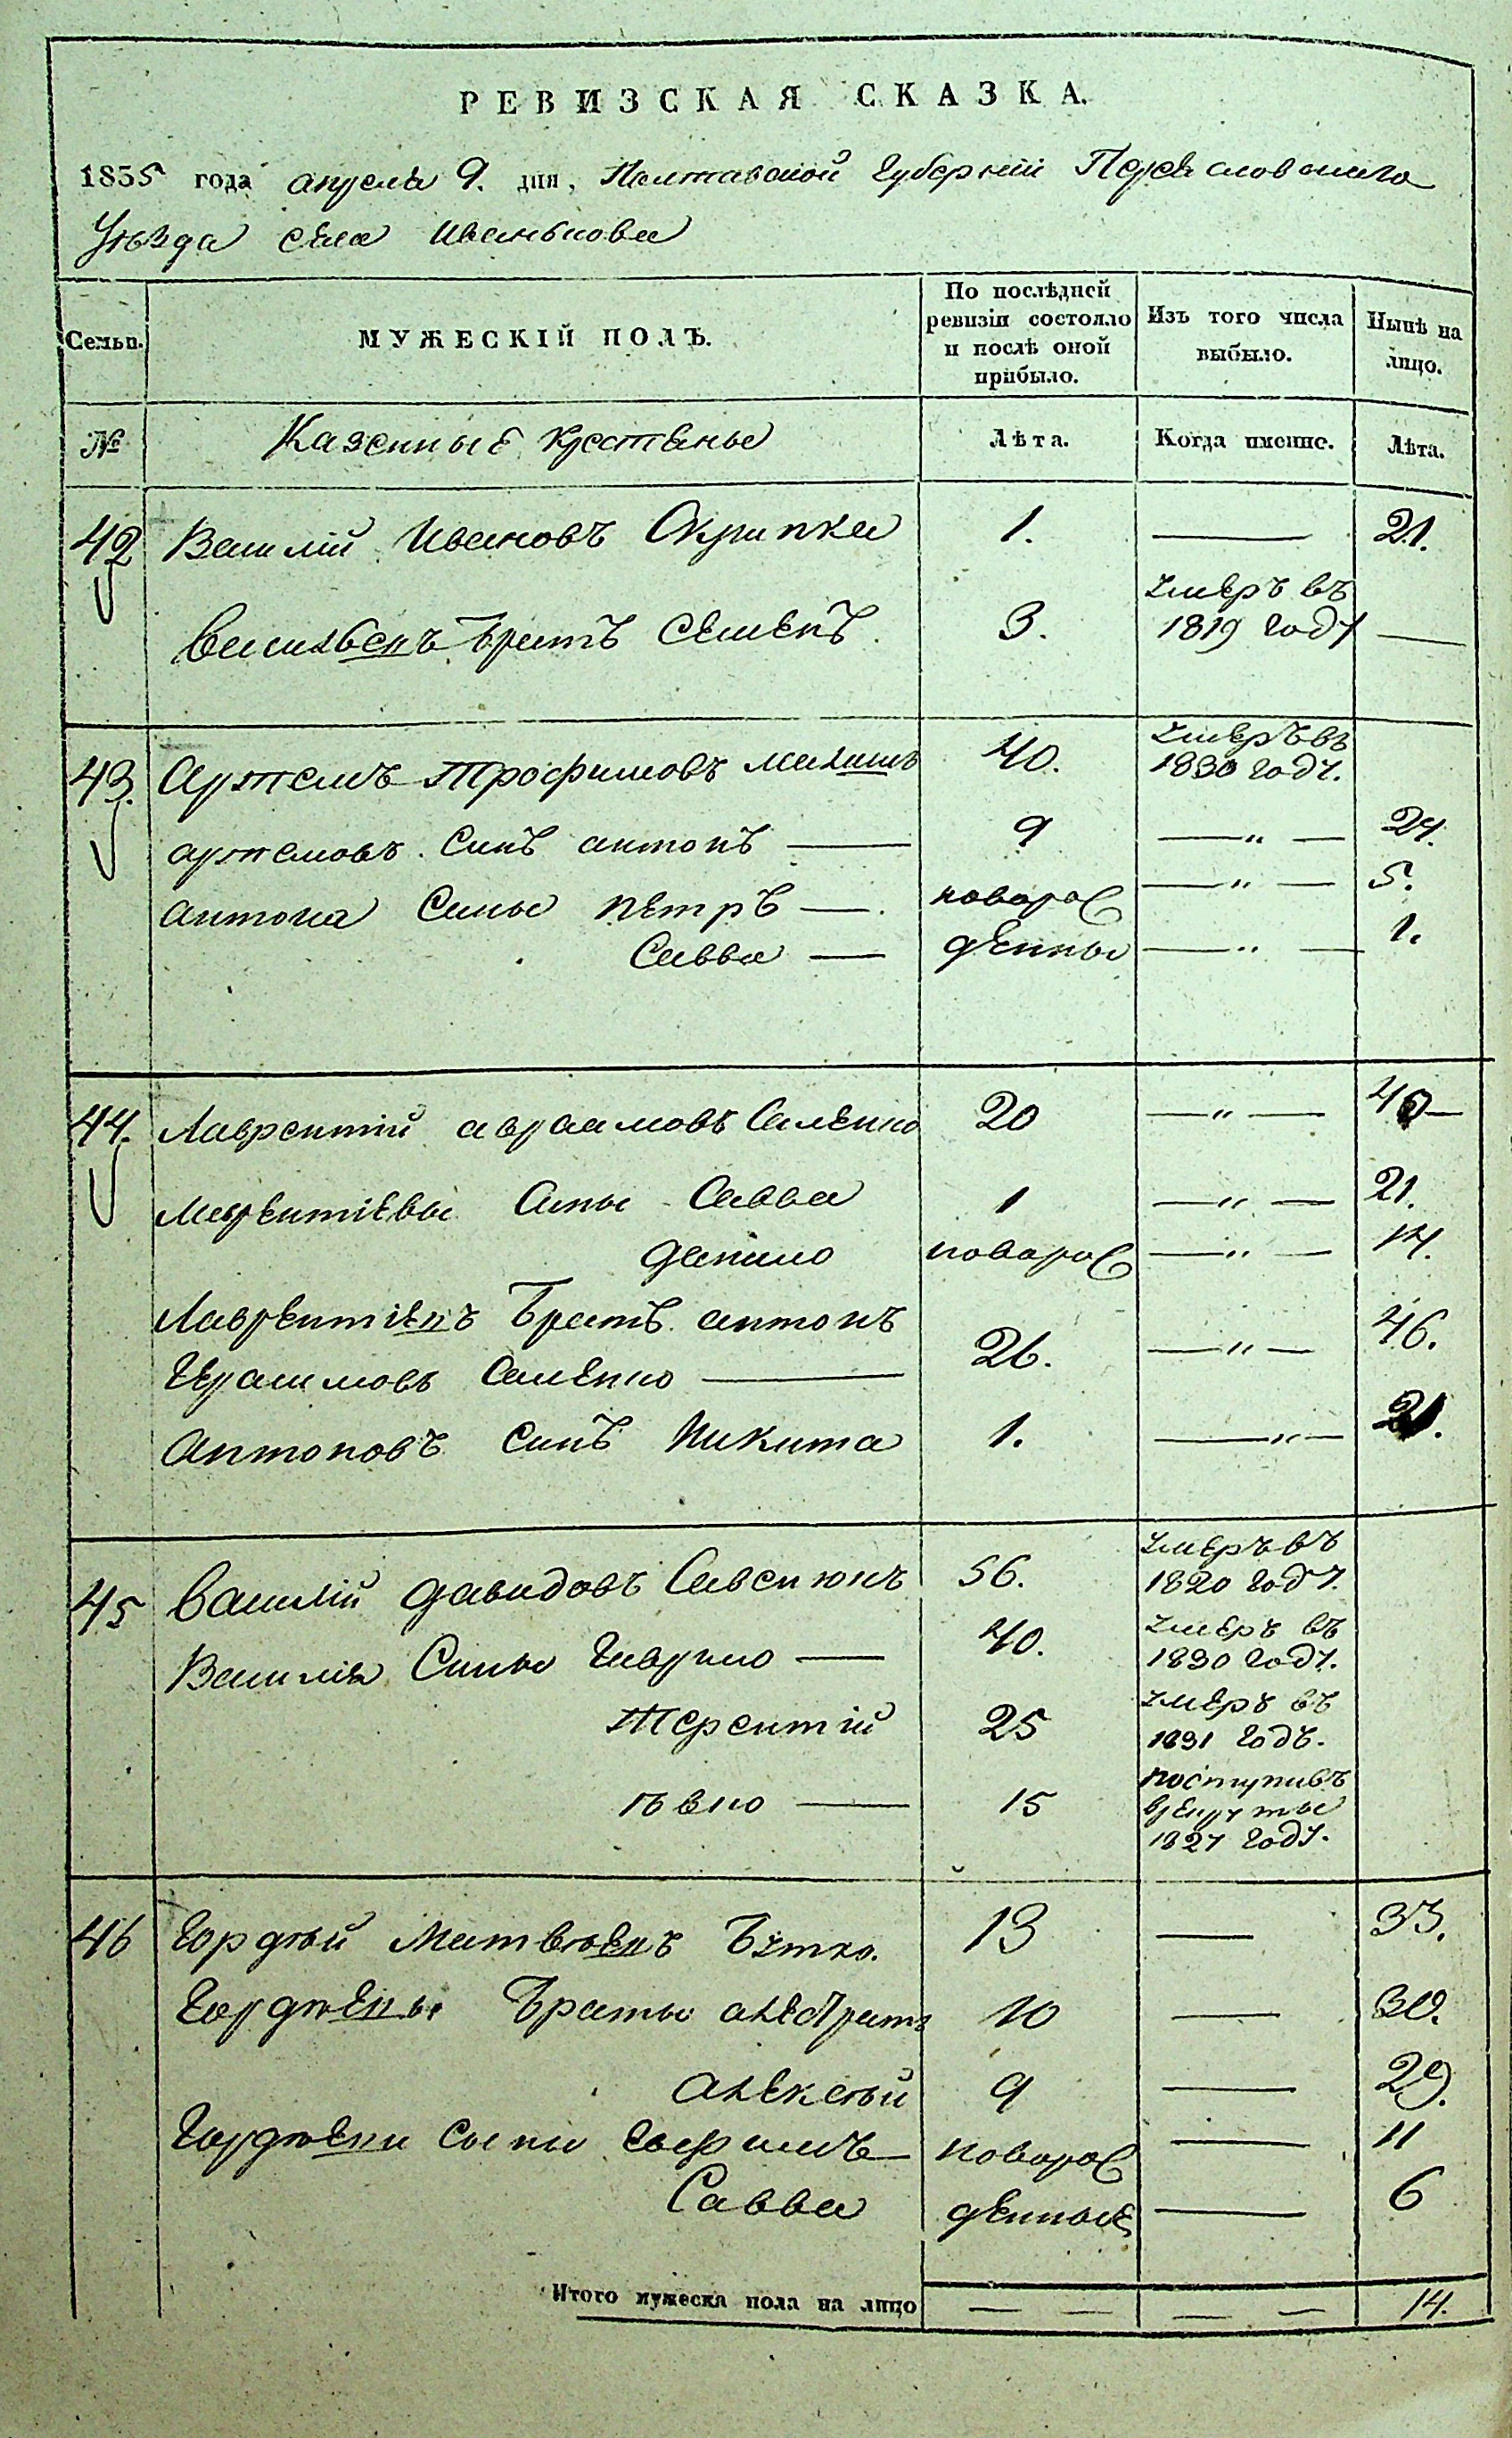 РЕВИЗСКАЯ СКАЗКА.
1835 года апреля 9. дня, Полтавской Губернїи Переясловскаго
Уѣзда села Иванькова
Семьи. МУЖЕСКІЙ ПОЛЪ. По послѣдней ревизіи состояло и послѣ оной прибыло. Изъ того числа выбыло. Нынѣ на лицо.
№ Казенные крестьяне Лѣта. Когда именно. Лѣта.
42 Василїй Ивановъ Скрипка 1. — 21.
Васильевъ Братъ Семенъ 3. умеръ въ 1819 году —
43. Артемъ Трофимовъ 40. умеръ въ 1830 году.
артемовъ Синъ антонъ — 9 — „ — 24.
антона Сины петръ — новорос — „ — 5.
Савва — денны — „ — 1.
44. Лаврентїй авраамовъ Саленко 20 — „ — 40 —
Лаврентїевы Сины Савва 1 — „ — 21.
данило новорос — „ — 14.
Лаврентїевъ Братъ антонъ
Герасимовъ Саленко — 26. — „ — 46.
антоновъ синъ Никита 1. — „ — 21.
45 Василїй давидовъ Савенюкъ 56. умеръ въ 1820 году.
Василїя Сины Гаврило — 40. умеръ въ 1830 году.
Терентїй 25 умеръ въ 1831 годъ.
— 15 поступивъ врекруты 1827 году.
46 Гордѣй Матвѣевъ Бутко. 13 — 33.
Гордѣевы Браты 10 — 30.
алексѣй 9 — 29.
Гордѣеви сыны Ефимъ новорос — 11
Савва денные — 6
Итого мужеска пола на лицо — — — — 14.